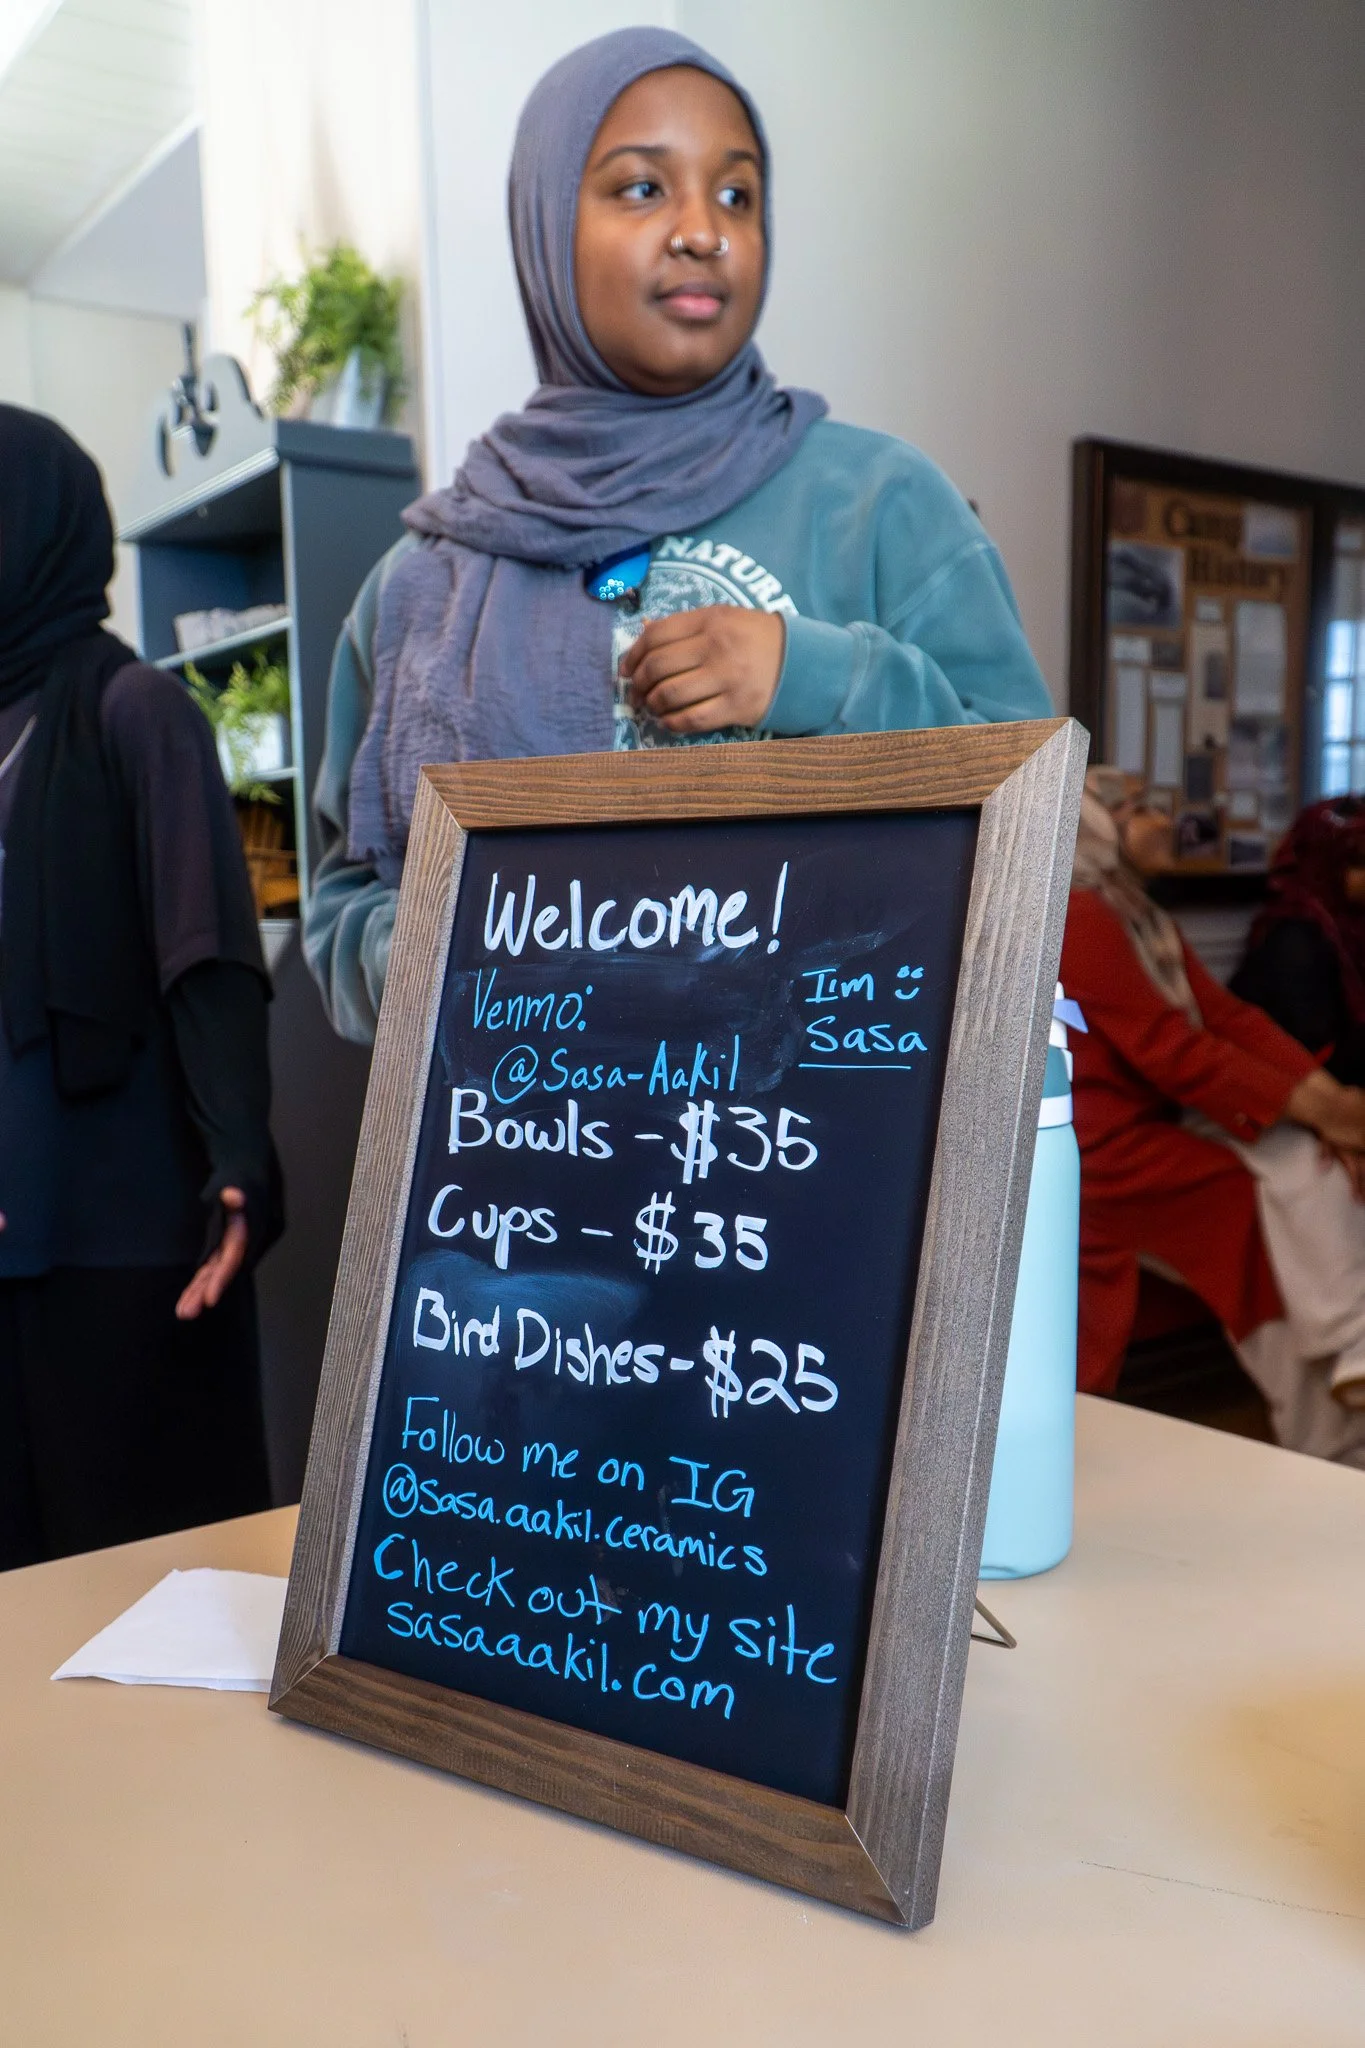 NATURE
Camp
History
Welcome!
Venmo:
@Sasa-Aakil
I'm
Sasa
Bowls - $35
Cups - $35
Bird Dishes - $25
Follow me on IG
@sasa.aakil.ceramics
Check out my site
sasaaakil.com